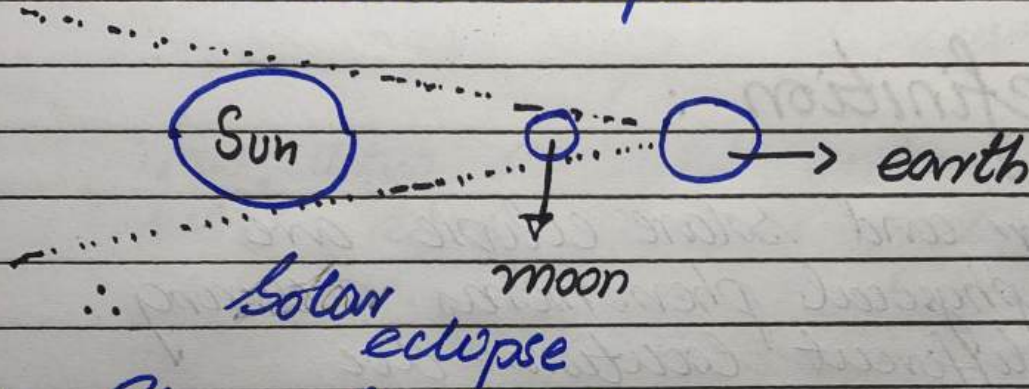 Sun
earth
moon
∴ Solar
eclipse